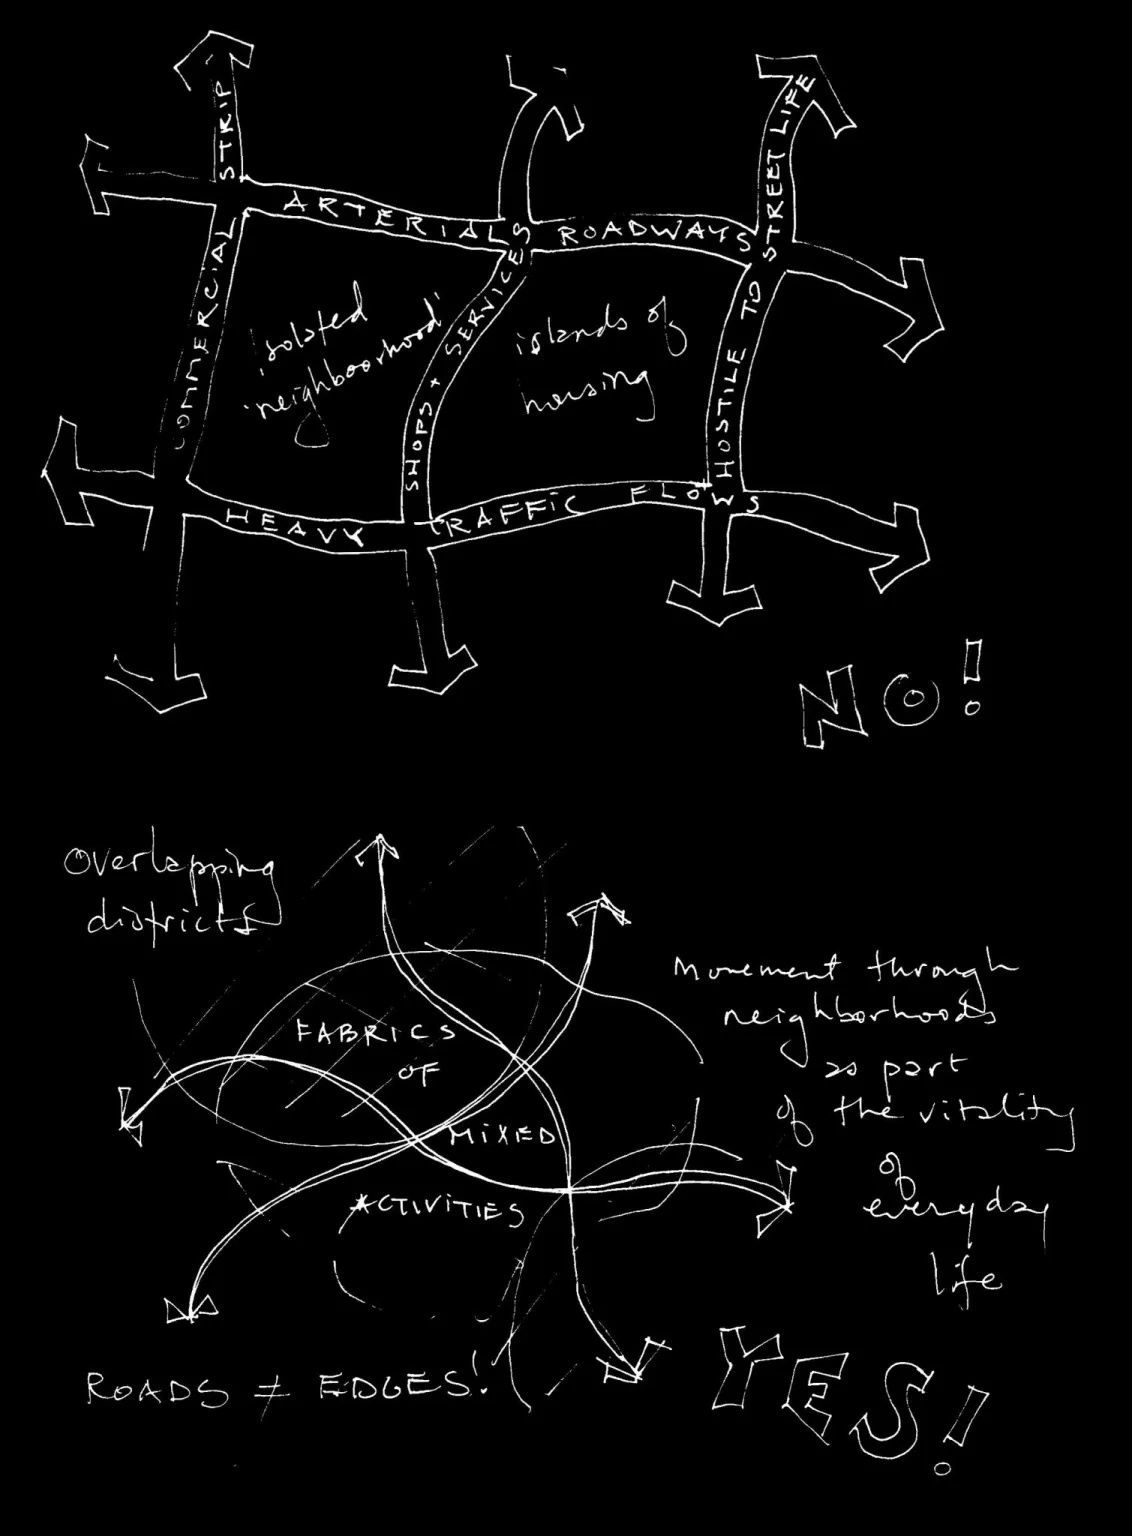 COMMERCIAL STRIP
ARTERIALS ROADWAYS
SHOPS + SERVICES
HOSTILE TO STREET LIFE
'isolated
'neighboorhood'
islands of
housing
HEAVY TRAFFIC FLOWS
NO!
Overlapping
districts
FABRICS
OF
MIXED
ACTIVITIES
Movement through
neighborhoods
as part
of the vitality
of
everyday
life
ROADS ≠ EDGES!
YES!